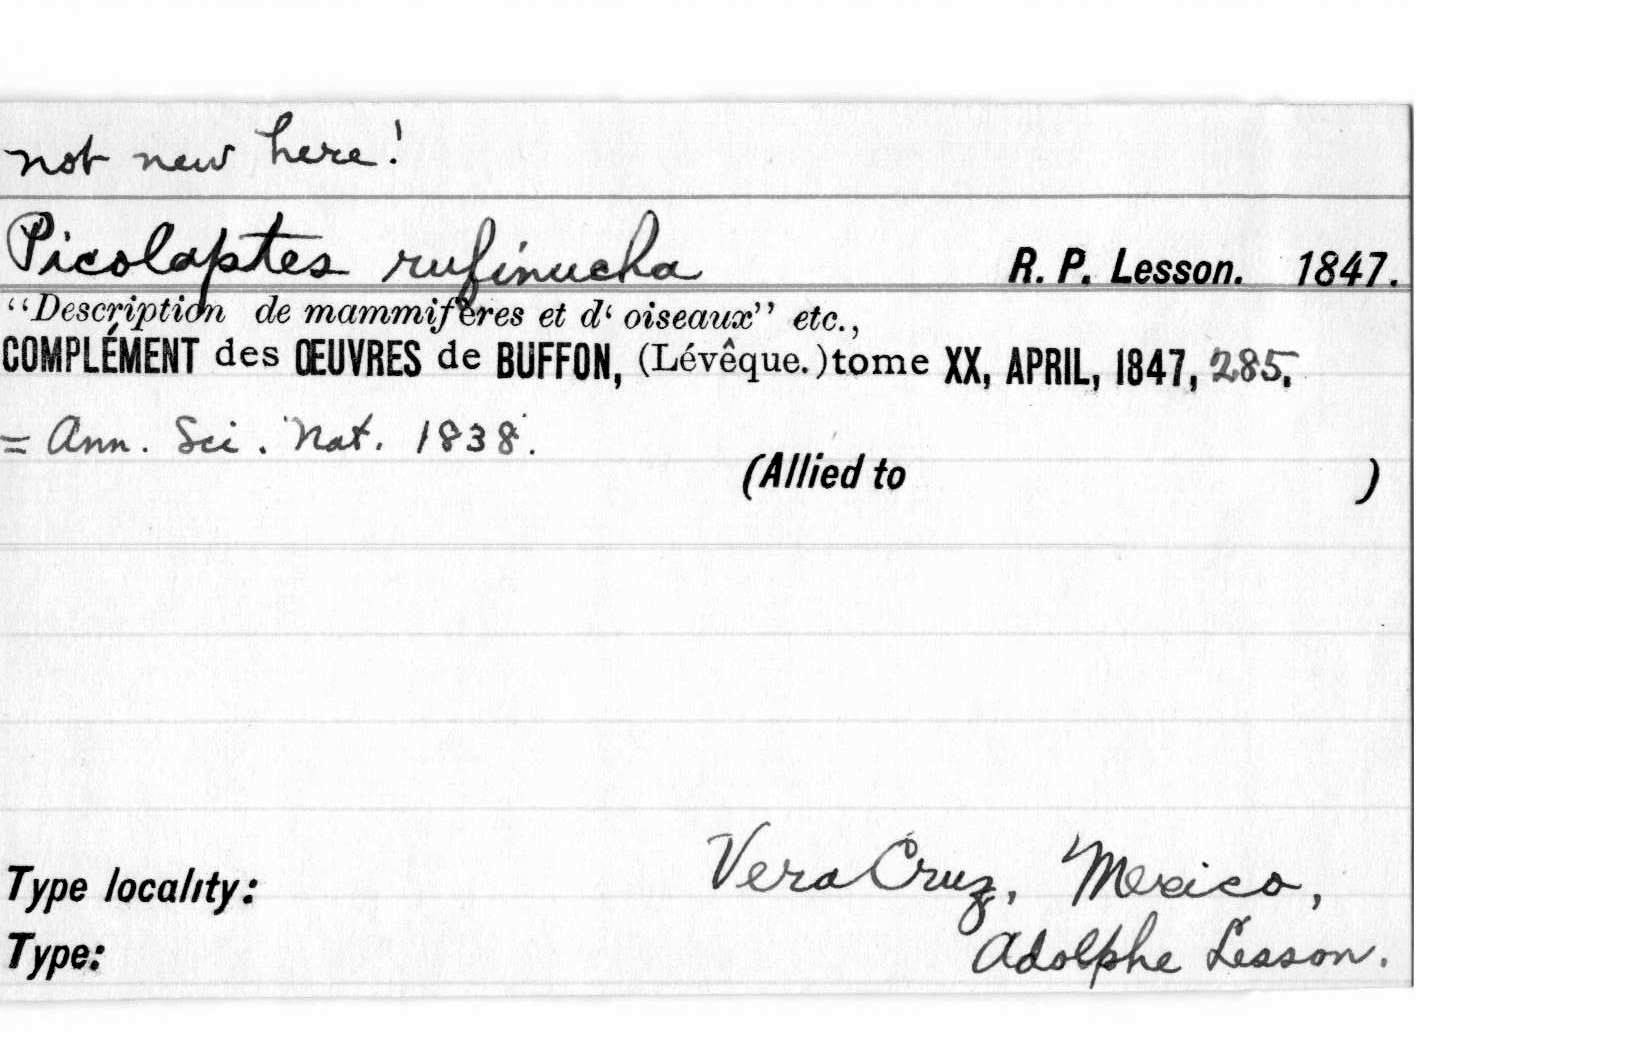 not new here!
Picolaptes rufinucha R. P. Lesson. 1847.
“Description de mammifères et d‘ oiseaux” etc.,
COMPLÉMENT des ŒUVRES de BUFFON, (Lévêque.) tome XX, APRIL, 1847, 285.
= Ann. Sci. Nat. 1838.
(Allied to )
Type locality: Vera Cruz, Mexico,
Type: Adolphe Lesson.